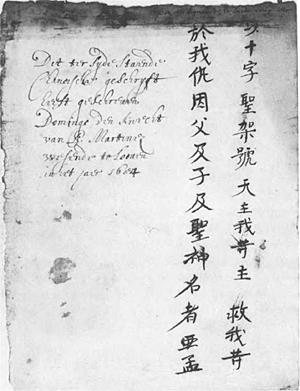 Dit ter syde staende
Chineische geschryft
heeft geschreven
Domingo den knecht
van P. Martinei
wesende te Loven
in het jaer 1654
以十字 聖架號 天主我等主 救我等
於我仇 因父及子及聖神名者 亞孟